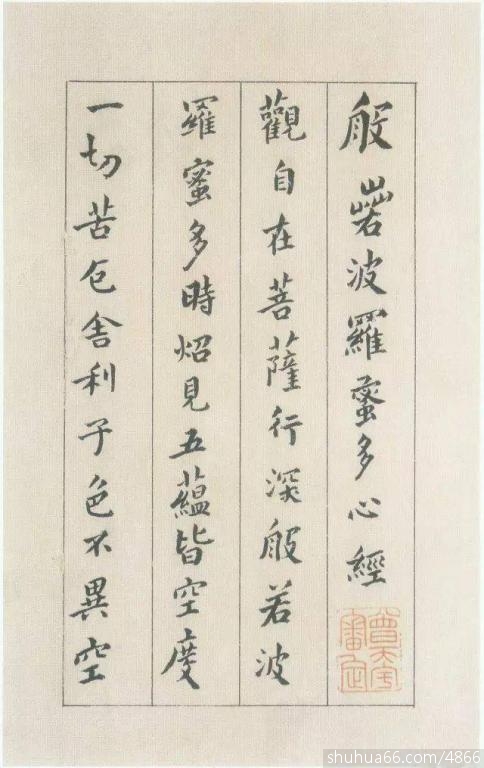 般若波羅蜜多心經
觀自在菩薩行深般若波
羅蜜多時炤見五蘊皆空度
一切苦厄舍利子色不異空
shuhua66.com/4866